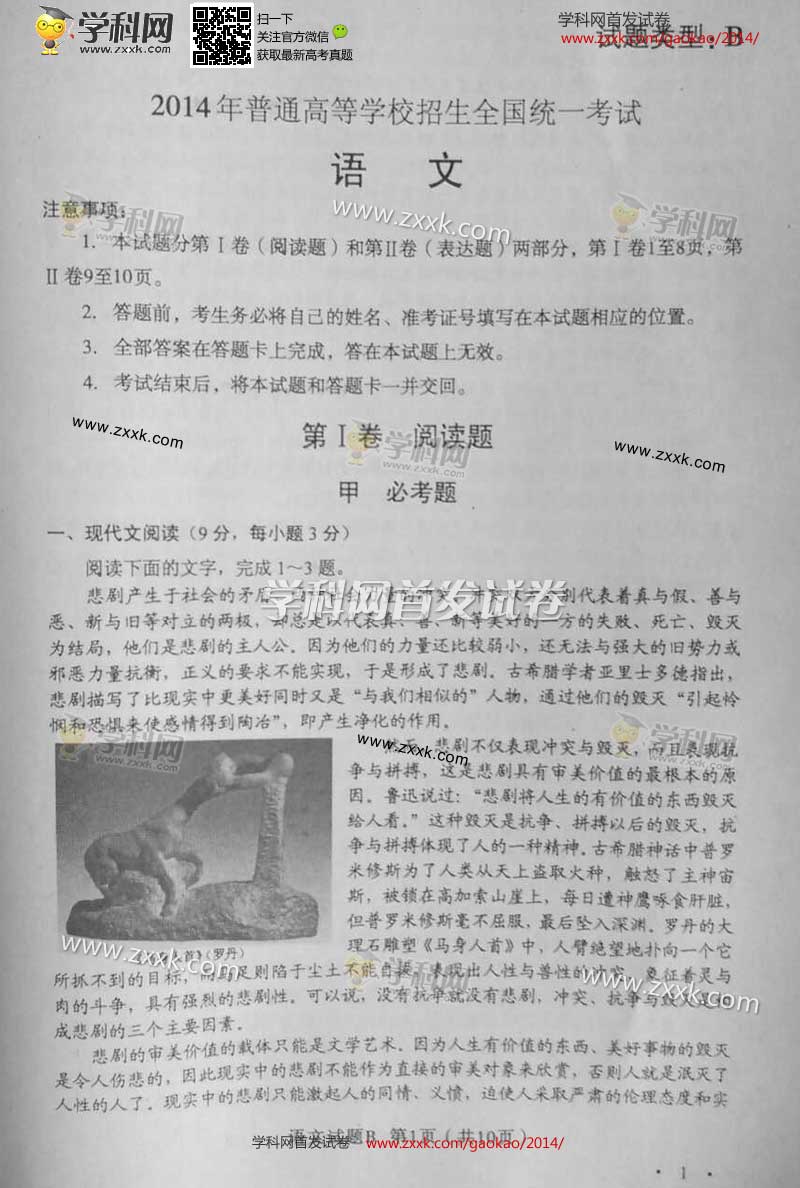 学科网
www.zxxk.com
扫一下
关注官方微信
获取最新高考真题
学科网首发试卷
www.zxxk.com/gaokao/2014/
试题类型：B
2014年普通高等学校招生全国统一考试
语 文
注意事项：
学科网
www.zxxk.com
1. 本试题分第Ⅰ卷（阅读题）和第Ⅱ卷（表达题）两部分，第Ⅰ卷1至8页，第
Ⅱ卷9至10页。
2. 答题前，考生务必将自己的姓名、准考证号填写在本试题相应的位置。
3. 全部答案在答题卡上完成，答在本试题上无效。
4. 考试结束后，将本试题和答题卡一并交回。
www.zxxk.com
第Ⅰ卷 阅读题
学科网
www.zxxk.com
甲 必考题
一、现代文阅读（9分，每小题3分）
阅读下面的文字，完成1～3题。
学科网首发试卷
悲剧产生于社会的矛盾、
别代表着真与假、善与
恶、新与旧等对立的两极，却总是以代表真、善、新等美好的一方的失败、死亡、毁灭
为结局，他们是悲剧的主人公。因为他们的力量还比较弱小，还无法与强大的旧势力或
邪恶力量抗衡，正义的要求不能实现，于是形成了悲剧。古希腊学者亚里士多德指出，
悲剧描写了比现实中更美好同时又是“与我们相似的”人物，通过他们的毁灭“引起怜
悯和恐惧来使感情得到陶冶”，即产生净化的作用。
然而，悲剧不仅表现冲突与毁灭，而且表现抗
争与拼搏，这是悲剧具有审美价值的最根本的原
因。鲁迅说过：“悲剧将人生的有价值的东西毁灭
给人看。”这种毁灭是抗争、拼搏以后的毁灭，抗
争与拼搏体现了人的一种精神。古希腊神话中普罗
米修斯为了人类从天上盗取火种，触怒了主神宙
斯，被锁在高加索山崖上，每日遭神鹰啄食肝脏，
但普罗米修斯毫不屈服，最后坠入深渊。罗丹的大
理石雕塑《马身人首》中，人臂绝望地扑向一个它
人首》（罗丹）
www.zxxk.com
所抓不到的目标，而马足则陷于尘土不能自拔，表现出人性与兽性的冲突，象征着灵与
肉的斗争，具有强烈的悲剧性。可以说，没有抗争就没有悲剧，冲突、抗争与毁灭是构
成悲剧的三个主要因素。
悲剧的审美价值的载体只能是文学艺术。因为人生有价值的东西、美好事物的毁灭
是令人伤悲的，因此现实中的悲剧不能作为直接的审美对象来欣赏，否则人就是泯灭了
人性的人了。现实中的悲剧只能激起人的同情、义愤，迫使人采取严肃的伦理态度和实
语文试题B 第1页（共10页）
学科网首发试卷
www.zxxk.com/gaokao/2014/
· 1 ·